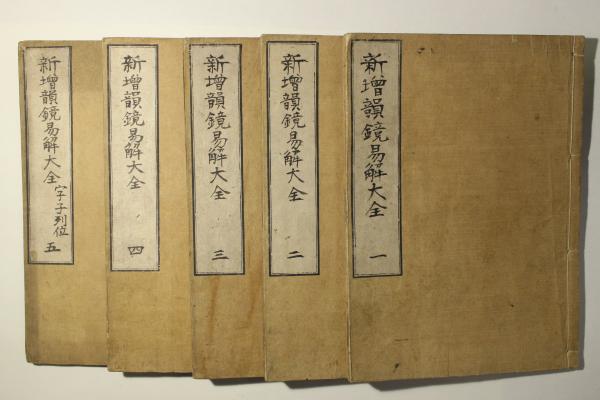 新增韻鏡易解大全 一
新增韻鏡易解大全 二
新增韻鏡易解大全 三
新增韻鏡易解大全 四
新增韻鏡易解大全 字子列位 五